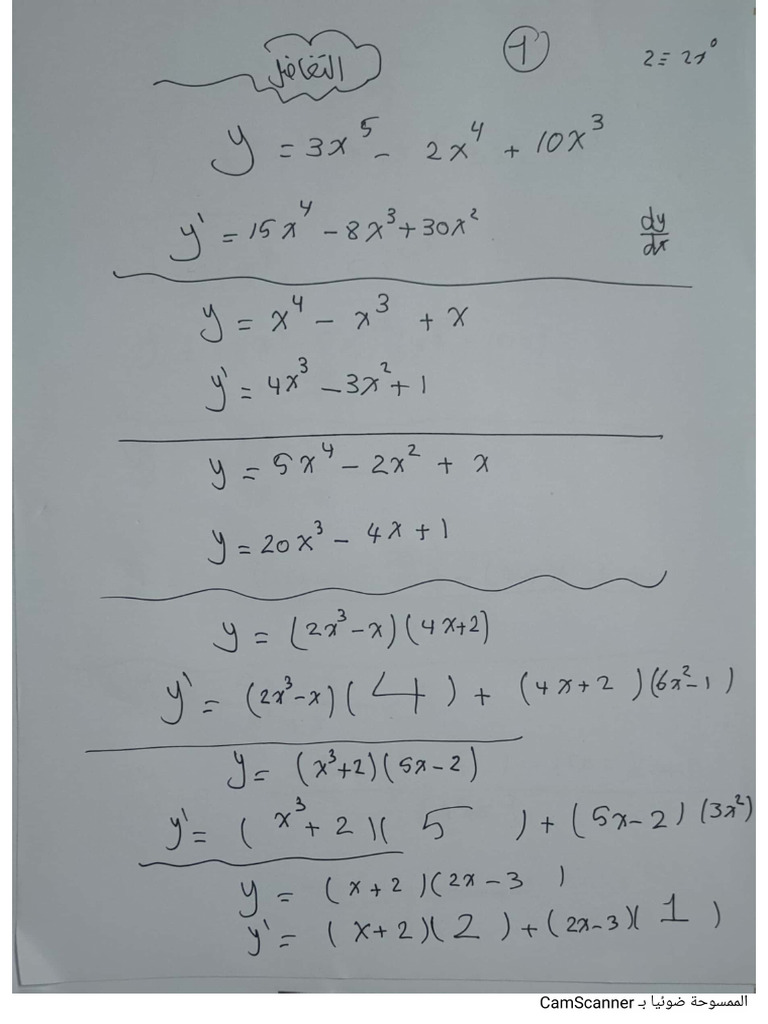 التفاضل
1
2 = 2x⁰
y = 3x⁵ - 2x⁴ + 10x³
y' = 15x⁴ - 8x³ + 30x²
dy/dx
y = x⁴ - x³ + x
y' = 4x³ - 3x² + 1
y = 5x⁴ - 2x² + x
y = 20x³ - 4x + 1
y = (2x³ - x)(4x+2)
y' = (2x³ - x)(4) + (4x+2)(6x² - 1)
y = (x³+2)(5x - 2)
y' = (x³ + 2)(5) + (5x - 2)(3x²)
y = (x+2)(2x - 3)
y' = (x+2)(2) + (2x - 3)(1)
الممسوحة ضوئيا بـ CamScanner